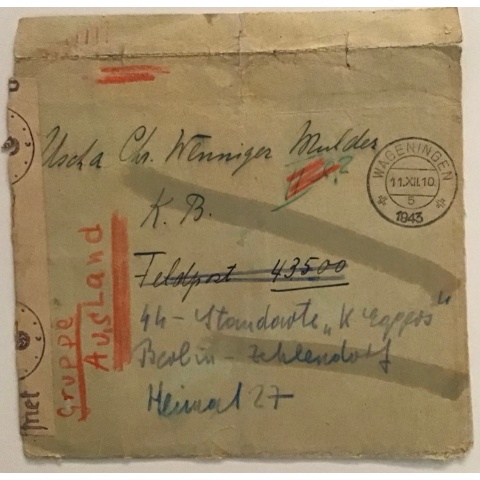 Uscha Chr. Wenniger Mulder
K. B.
Feldpost 43500
44 - Standarte „K Eggers"
Berlin - Zehlendorf
Heimat 27
Gruppe
Ausland
WAGENINGEN
11.XII.10
5
1943